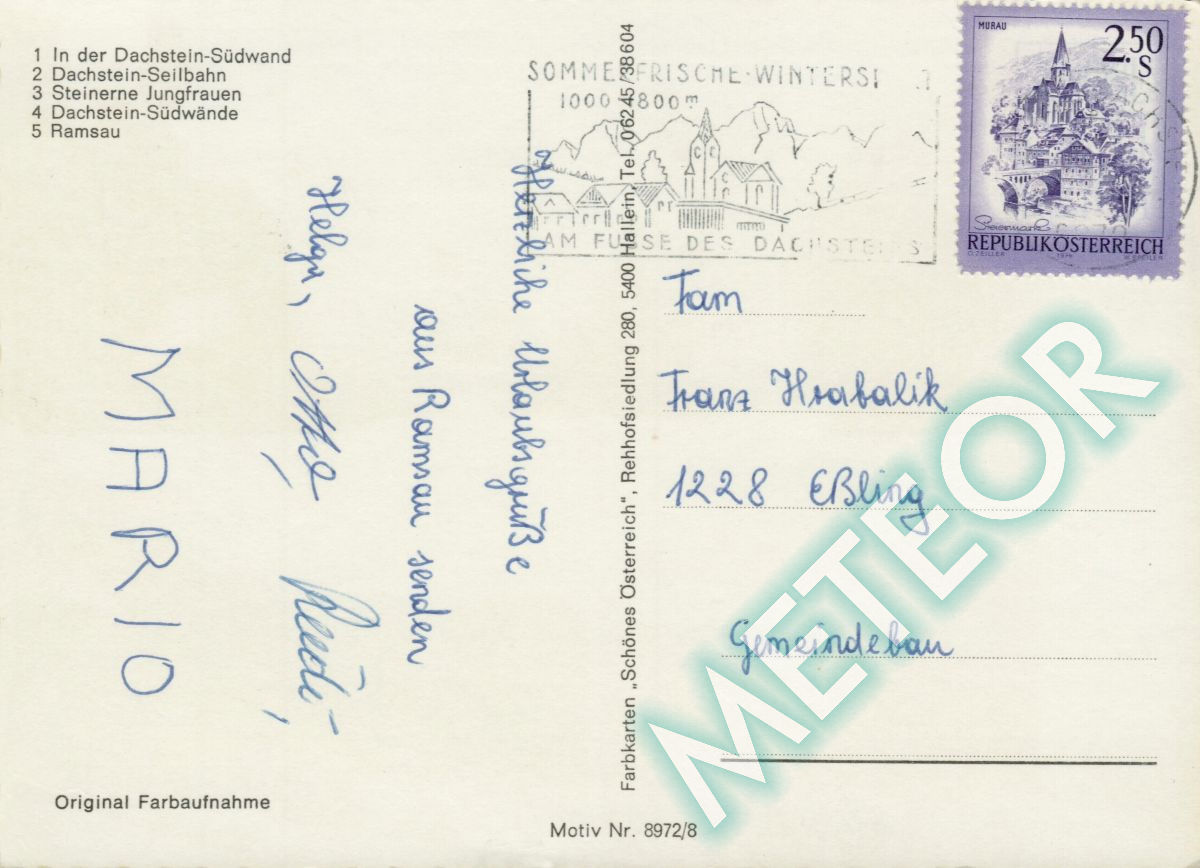 1 In der Dachstein-Südwand
2 Dachstein-Seilbahn
3 Steinerne Jungfrauen
4 Dachstein-Südwände
5 Ramsau
Herzliche Urlaubsgrüße
aus Ramsau senden
Helga,
Rudi,
MARIO
Original Farbaufnahme
Farbkarten „Schönes Österreich", Rehhofsiedlung 280, 5400 Hallein, Tel. 06245/38604
Motiv Nr. 8972/8
SOMMERFRISCHE-WINTERSP
1000-2800m
AM FUSSE DES DACHSTEINS
MURAU
2.50
S
Steiermark
REPUBLIK ÖSTERREICH
Fam
Franz Hrabalik
1228 Eßling
Gemeindebau
METEOR